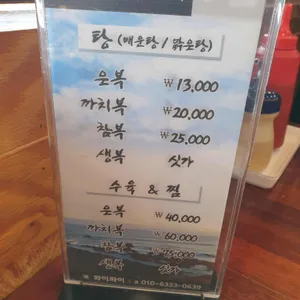 탕 (매운탕 / 맑은탕)
은복 ₩13,000
까치복 ₩20,000
참복 ₩25,000
생복 싯가
수육 & 찜
은복 ₩40,000
까치복 ₩60,000
참복
생복 싯가
010-6333-0639